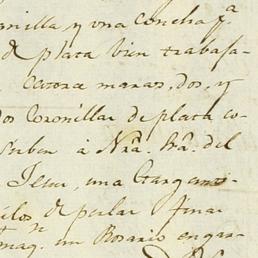 anilla y vna concha pª
de plata bien trabaja-
Catorce marcos, dos, y
dos Coronillas de plata co-
sirben a Nrã. Srã. del
Jesus, una Gargan
ilos de perlas fina
un Rosario engar-